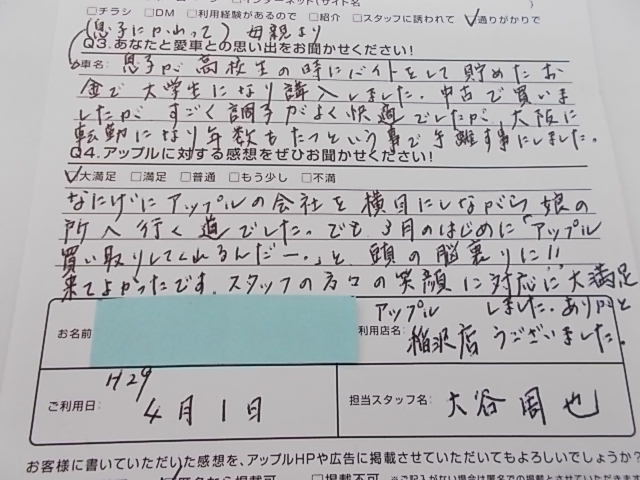 □チラシ □DM □利用経験があるので □紹介 □スタッフに誘われて ☑通りがかりで
(息子にかわって) 母親より
Q3.あなたと愛車との思い出をお聞かせください!
車名: 息子が高校生の時にバイトをして貯めたお
金で大学生になり購入しました。中古で買いま
したが、すごく調子がよく快適でしたが、大阪に
転勤になり年数もたつという事で手離す事にしました。
Q4.アップルに対する感想をぜひお聞かせください!
☑大満足 □満足 □普通 □もう少し □不満
なにげにアップルの会社を横目にしながら娘の
所へ行く道でした。でも3月のはじめに「アップル
買い取りしてくれるんだー。」と頭の脳裏りに!!
来てよかったです。スタッフの方々の笑顔に対応に"大満足
しました。ありがと
うございました。
お名前
利用店名: アップル
稲沢店
ご利用日: H29
4月1日
担当スタッフ名: 大谷周也
お客様に書いていただいた感想を、アップルHPや広告に掲載させていただいてもよろしいでしょうか?
□掲載不可 ※ご記入がない場合は匿名での掲載とさせていただきます